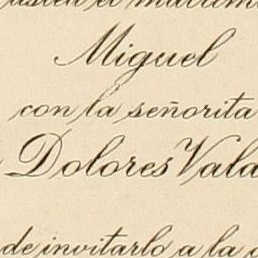 usted el matrim
Miguel
con la señorita
Dolores Vala
de invitarlo a la c